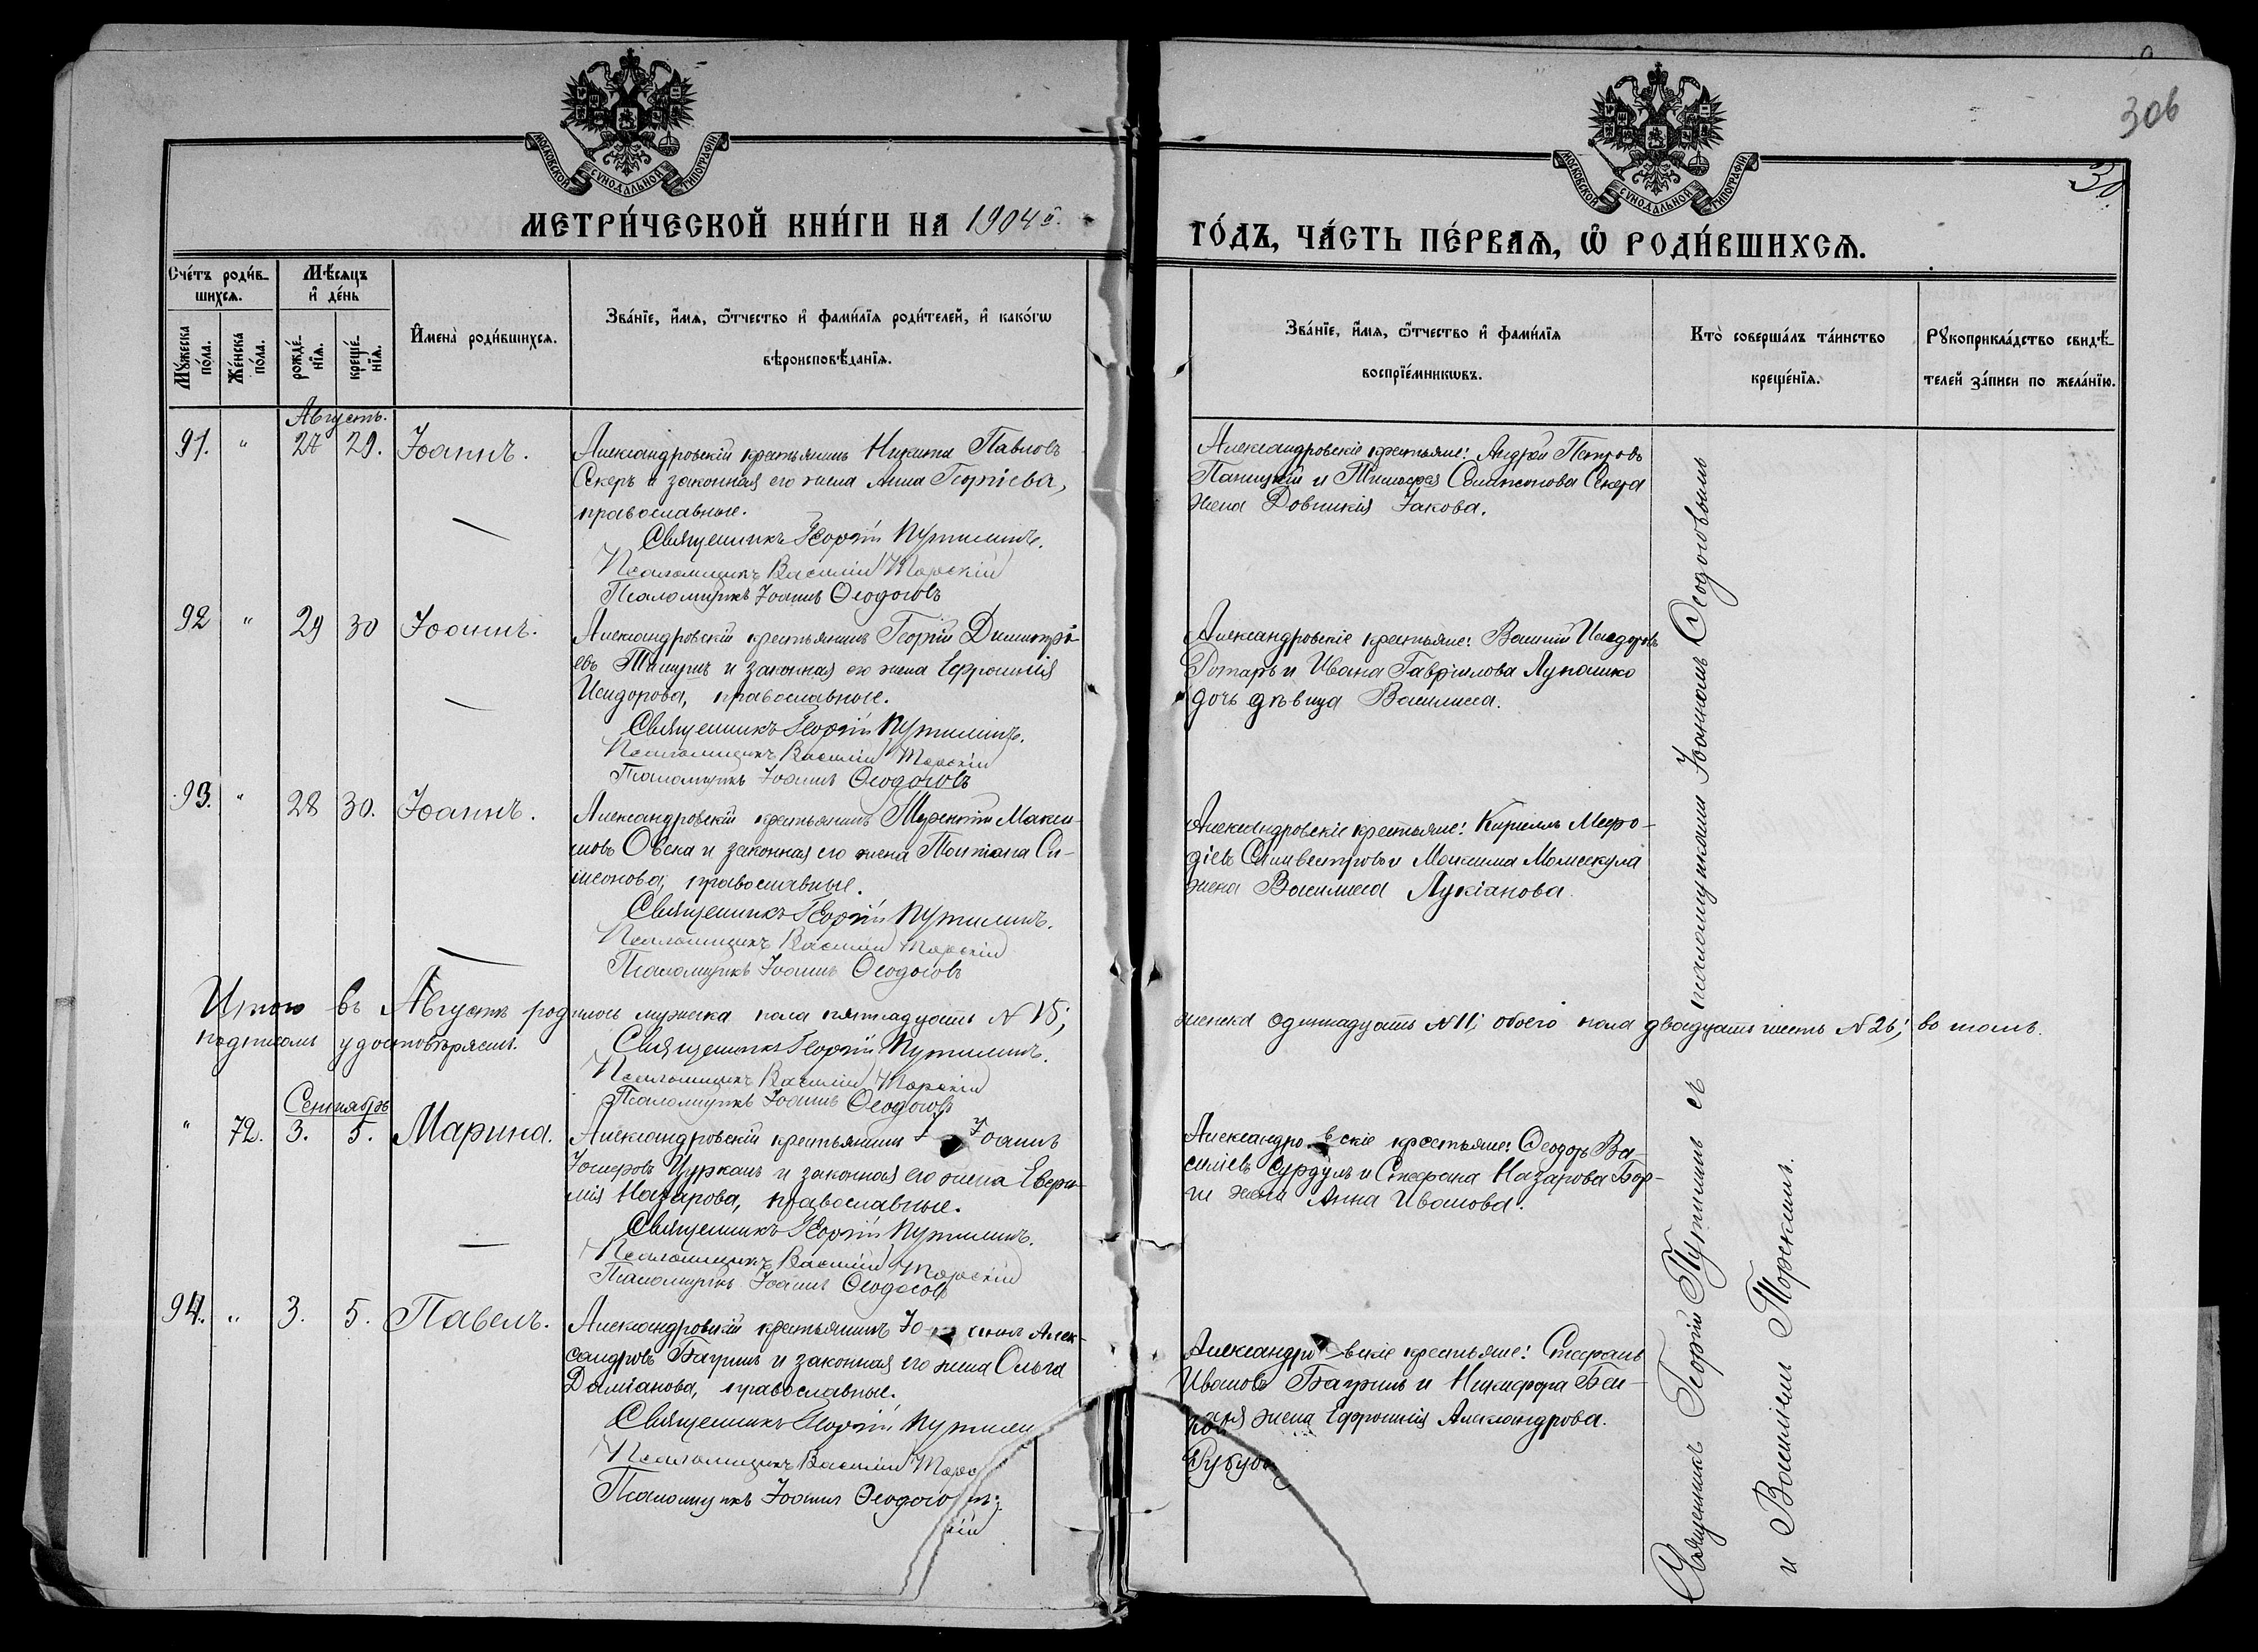 306
30
МОСКОВСКОЙ СѴНОДАЛЬНОЙ ТИПОГРАФІИ
МОСКОВСКОЙ СѴНОДАЛЬНОЙ ТИПОГРАФІИ
МЕТРИ́ЧЕСКОЙ КНИ́ГИ НА 1904 й.
ГО́ДЪ, ЧА́СТЬ ПЕ́РВАѦ, Ѽ РОДИ́ВШИХСѦ.
Сче́тъ роди́в-
шихсѧ.
Мꙋ́жеска по́ла.
Же́нска по́ла.
Мѣ́сяцъ
и҆ де́нь
рожде́-нїѧ.
креще́-нїѧ.
И҆мена̀ роди́вшихсѧ.
Зва́нїе, и҆́мѧ, ѻ҆́тчество и҆ фами́лїѧ роди́телей, и҆ како́гѡ
вѣроисповѣ́данїѧ.
Зва́нїе, и҆́мѧ, ѻ҆́тчество и҆ фами́лїѧ
воспрїе́мникѡвъ.
Кто̀ соверша́лъ та́инство
креще́нїѧ.
Рꙋкоприкла́дство свидѣ́-
телей за́писи по жела́нїю.
Августъ.
91. " 27 29. Іоаннъ.
Александровскій крестьянинъ Никита Павловъ
Секеръ и законная его жена Анна Георгіева,
православные.
Священникъ Георгій Путилинъ.
Псаломщикъ Василій Торскій
Псаломщикъ Іоаннъ Ѳеодосовъ
Александровскіе крестьяне: Андрей Петровъ
и Симеонова Секера
жена Іакова.
92 " 29 30 Іоаннъ.
Александровскій крестьянинъ Георгій Димитрі-
евъ и законная его жена Ефросинія
Исидорова, православные.
Священникъ Георгій Путилинъ.
Псаломщикъ Василій Торскій
Псаломщикъ Іоаннъ Ѳеодосовъ
Александровскіе крестьяне: Исидоровъ
Ротарь и Ивана Гавріилова Лупашко
дочь дѣвица Василисса.
93. " 28 30. Іоаннъ.
Александровскій крестьянинъ Терентій Макси-
мовъ Овска и законная его жена Татіана Си-
меонова, православные.
Священникъ Георгій Путилинъ.
Псаломщикъ Василій Торскій
Псаломщикъ Іоаннъ Ѳеодосовъ
Александровскіе крестьяне: Кириллъ Меѳо-
діевъ Силивестровъ и Максима
жена Василисса Лукіанова.
Итого въ Августѣ родилось мужеска пола пятнадцать №15;
женска одиннадцать №11; обоего пола двадцать шесть №26; въ томъ
подписомъ удостовѣряемъ.
Священникъ Георгій Путилинъ.
Псаломщикъ Василій Торскій
Псаломщикъ Іоаннъ Ѳеодосовъ
Сентябрь
" 72. 3. 5. Марина.
Александровскій крестьянинъ Іоаннъ
Іосифовъ Цурканъ и законная его жена Евфи-
мія Назарова, православные.
Священникъ Георгій Путилинъ.
Псаломщикъ Василій Торскій
Псаломщикъ Іоаннъ Ѳеодосовъ
Александровскіе крестьяне: Ѳеодоръ Ва-
силіевъ Сурдулъ и Стефана Назарова
жена Анна Иванова.
94. " 3. 5. Павелъ.
Александровскій крестьянинъ Алек-
сандровъ Багринъ и законная его жена Ольга
Даміанова, православные.
Священникъ Георгій Путилин
Псаломщикъ Василій Торс
Псаломщикъ Іоаннъ Ѳеодосо
кій
Александровскіе крестьяне: Стефанъ
Ивановъ Багринъ и Никифора
жена Ефросинія Александрова.
Священникъ Георгій Путилинъ съ псаломщиками Іоанномъ Ѳеодосовымъ
и Василіемъ Торскимъ.